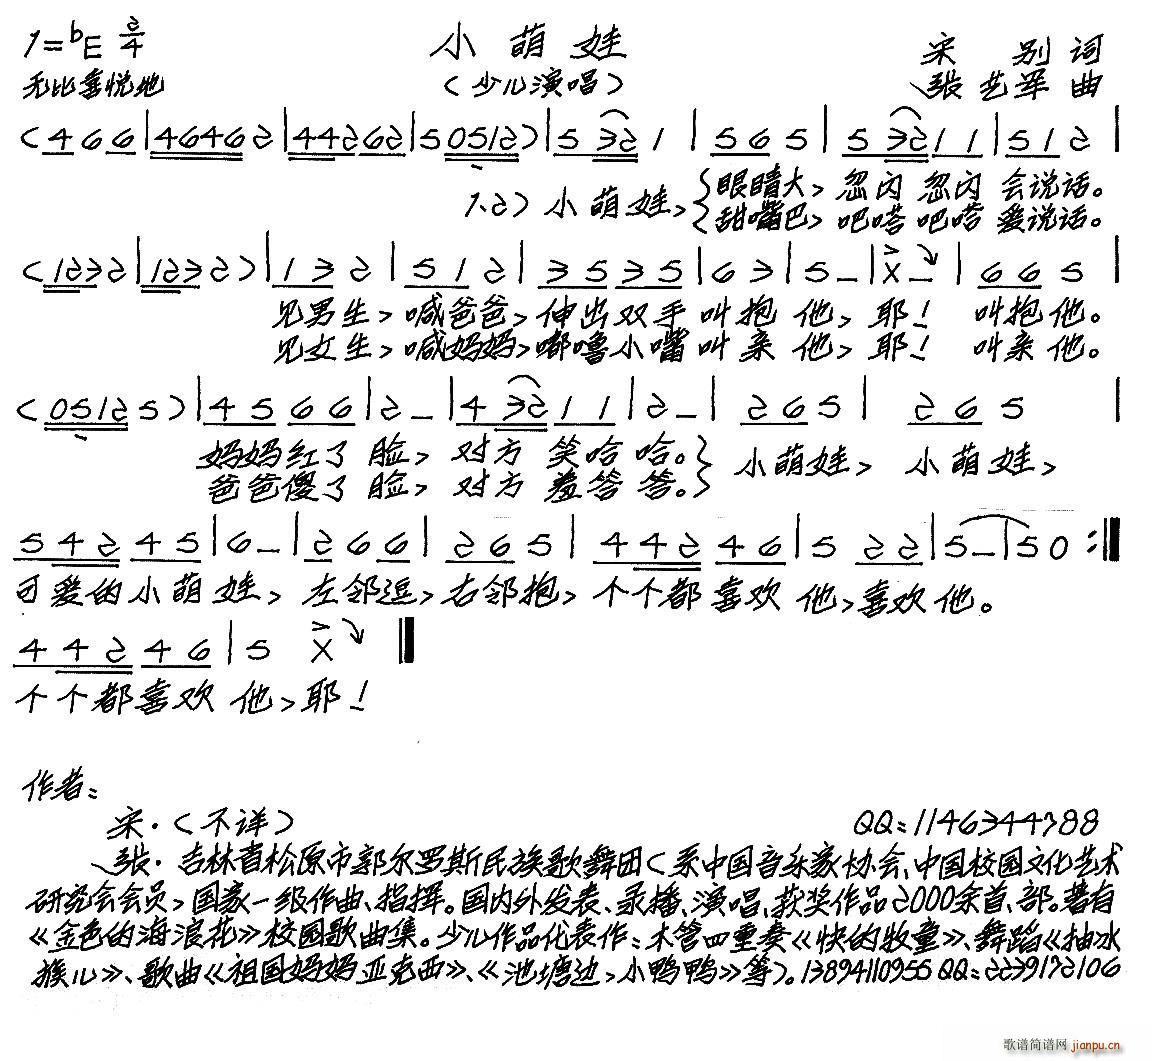 1=ᵇE 2/4 小萌娃 宋 别 词
无比喜悦地 (少儿演唱) 张艺军 曲
(4 6 6|4 6 4 6 2|4 4 2 6 2|5 0 5 1 2)|5 3 2 1|5 6 5|5 3 2 1 1|5 1 2|
眼睛大, 忽闪 忽闪 会说话。
1.2) 小萌娃,
甜嘴巴, 吧嗒 吧嗒 爱说话。
(1 2 3 2|1 2 3 2)|1 3 2|5 1 2|3 5 3 5|6 3|5 –|X –|6 6 5|
见男生, 喊爸爸, 伸出双手 叫抱 他, 耶! 叫抱他。
见女生, 喊妈妈, 嘟噜小嘴 叫亲 他, 耶! 叫亲他。
(0 5 1 2 5)|4 5 6 6|2 –|4 3 2 1 1|2 –|2 6 5|2 6 5|
妈妈红了 脸, 对方 笑哈 哈。 小萌娃, 小萌娃,
爸爸傻了 脸, 对方 羞答 答。
5 4 2 4 5|6 –|2 6 6|2 6 5|4 4 2 4 6|5 2 2|5 –|5 0 :‖
可爱的小萌 娃, 左邻逗, 右邻抱, 个个都喜欢 他, 喜欢他。
4 4 2 4 6|5 X ‖
个个都喜欢 他, 耶!
作者:
宋·(不详) QQ:1146344788
张·吉林省松原市郭尔罗斯民族歌舞团(系中国音乐家协会、中国校园文化艺术
研究会会员, 国家一级作曲、指挥。国内外发表、录播、演唱、获奖作品2000余首、部。著有
《金色的海浪花》校园歌曲集。少儿作品代表作:木管四重奏《快的牧童》、舞蹈《抽冰
猴儿》、歌曲《祖国妈妈亚克西》、《池塘边, 小鸭鸭》等)。13894110955 QQ:2239172106
歌谱简谱网 jianpu.cn